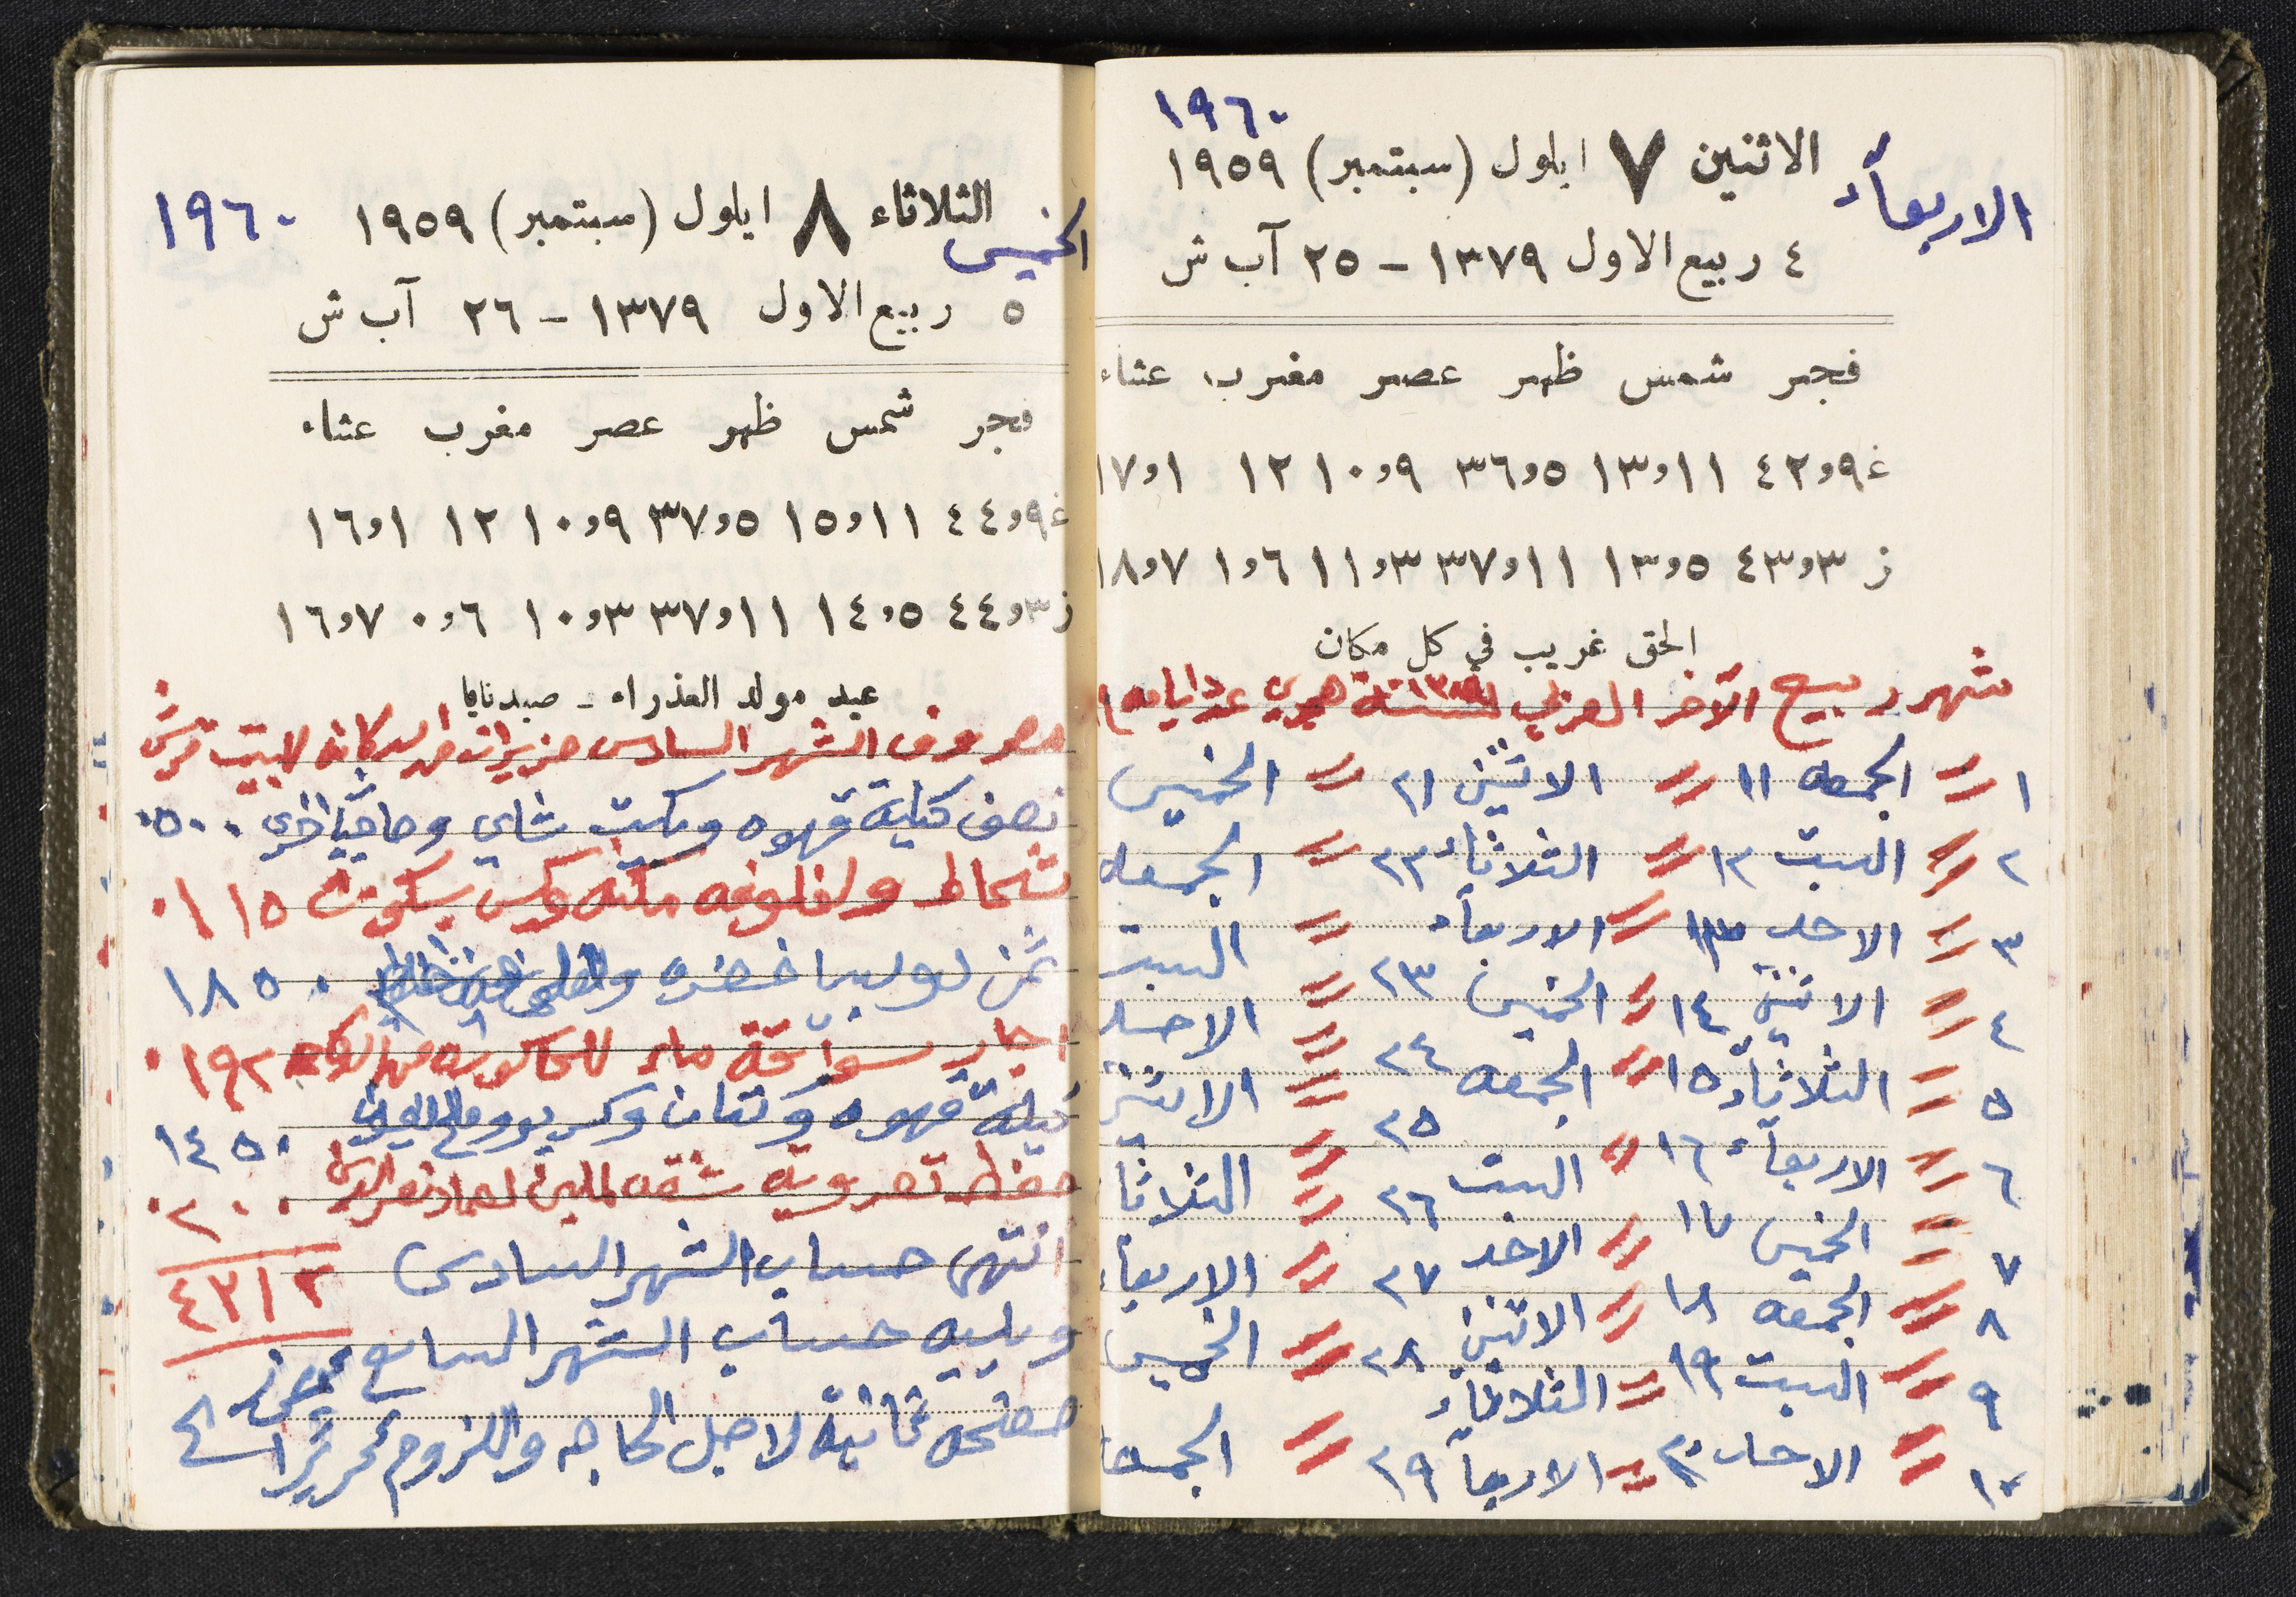 ١٩٦٠
الاربعاء الاثنين ٧ ايلول (سبتمبر) ١٩٥٩
٤ ربيع الاول ١٣٧٩ - ٢٥ آب ش
فجر شمس ظهر عصر مغرب عشاء
غ ٩و٤٢ ١١و١٣ ٥و٣٦ ٩و١٠ ١٢ ١و١٧
ز ٣و٤٣ ٥و١٣ ١١و٣٧ ٣و١١ ٦و١ ٧و١٨
الحق غريب في كل مكان
شهر ربيع الآخر العربي لسنة هجري عدد ايامه
١ = الجمعه ١١ = الاثنين ٢١ = الخميس
٢ = السبت ١٢ = الثلاثاء ٢٢ = الجمعه
٣ = الاحد ١٣ = الاربعاء = السبت
٤ = الاثنين ١٤ = الخميس ٢٣ = الاحد
٥ = الثلاثاء ١٥ = الجمعه ٢٤ = الاثنين
٦ = الاربعاء ١٦ = السبت ٢٥ = الثلاثا
٧ = الخميس ١٧ = الاحد ٢٦ = الاربعاء
٨ = الجمعه ١٨ = الاثنين ٢٧ = الخميس
٩ = السبت ١٩ = الثلاثاء ٢٨
١٠ = الاحد ٢٠ = الاربعاء ٢٩ = الجمعه
الخميس الثلاثاء ٨ ايلول (سبتمبر) ١٩٥٩ ١٩٦٠
٥ ربيع الاول ١٣٧٩ - ٢٦ آب ش
فجر شمس ظهر عصر مغرب عشاء
غ ٩و٤٤ ١١و١٥ ٥و٣٧ ٩و١٠ ١٢ ١و١٦
ز ٣و٤٤ ٥و١٤ ١١و٣٧ ٣و١٠ ٦و٠ ٧و١٦
عيد مولد العذراء - صيدنايا
مصروف الشهر السادس حزيران من الدكانه للبيت قرش
نصف كيلة قهوه وباكيت شاي وحاجيات اخرى ٠٥٠٠
وكيس بسكوت ٠١١٥
ثمن لوبيا خضره ١٨٥٠
اجار ٠١٩٢
كيلة قهوه ١٤٥٠
٠٢٠٠
انتهى حساب الشهر السادس ٤٣١٢
ويليه حساب الشهر السابع
صفحه ثانية لاجل الحاجه واللزوم